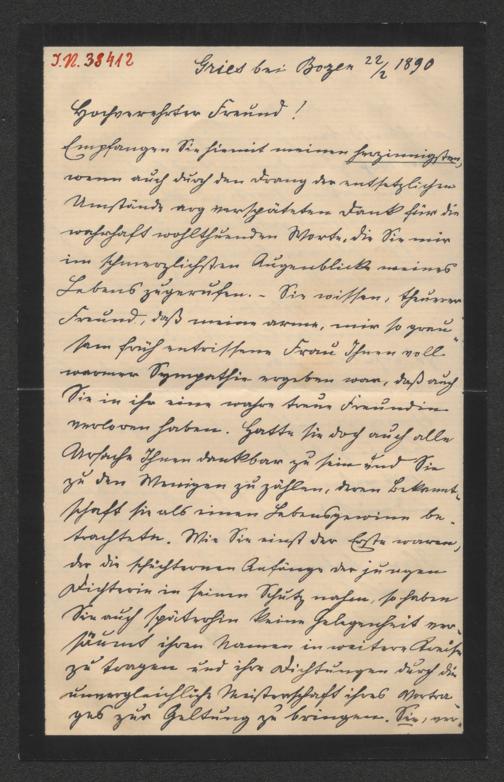 J.N. 38412
Gries bei Bozen 22/2 1890
Hochverehrter Freund!
Empfangen Sie hiemit meinen herzinnigsten,
wenn auch durch den Drang der entsetzlichen
Umstände arg verspäteten Dank für die
wahrhaft wohlthuenden Worte, die Sie mir
im schmerzlichsten Augenblicke meines
Lebens zugerufen. - Sie wissen, theuerer
Freund, daß meine arme, mir so grau-
sam früh entrissene Frau Ihnen voll
warmer Sympathie ergeben war, daß auch
Sie in ihr eine wahre treue Freundin
verloren haben. Hatte sie doch auch alle
Ursache Ihnen dankbar zu sein und Sie
zu den Wenigen zu zählen, deren Bekannt-
schaft sie als einen Lebensgewinn be-
trachtete. Wie Sie einst der Erste waren,
der die schüchternen Anfänge der jungen
Dichterin in seinen Schutz nahm, so haben
Sie auch späterhin keine Gelegenheit ver-
säumt ihren Namen in weitere Kreise
zu tragen und ihre Dichtungen durch die
unvergleichliche Meisterschaft ihres Vortra-
ges zur Geltung zu bringen. Sie, ver-